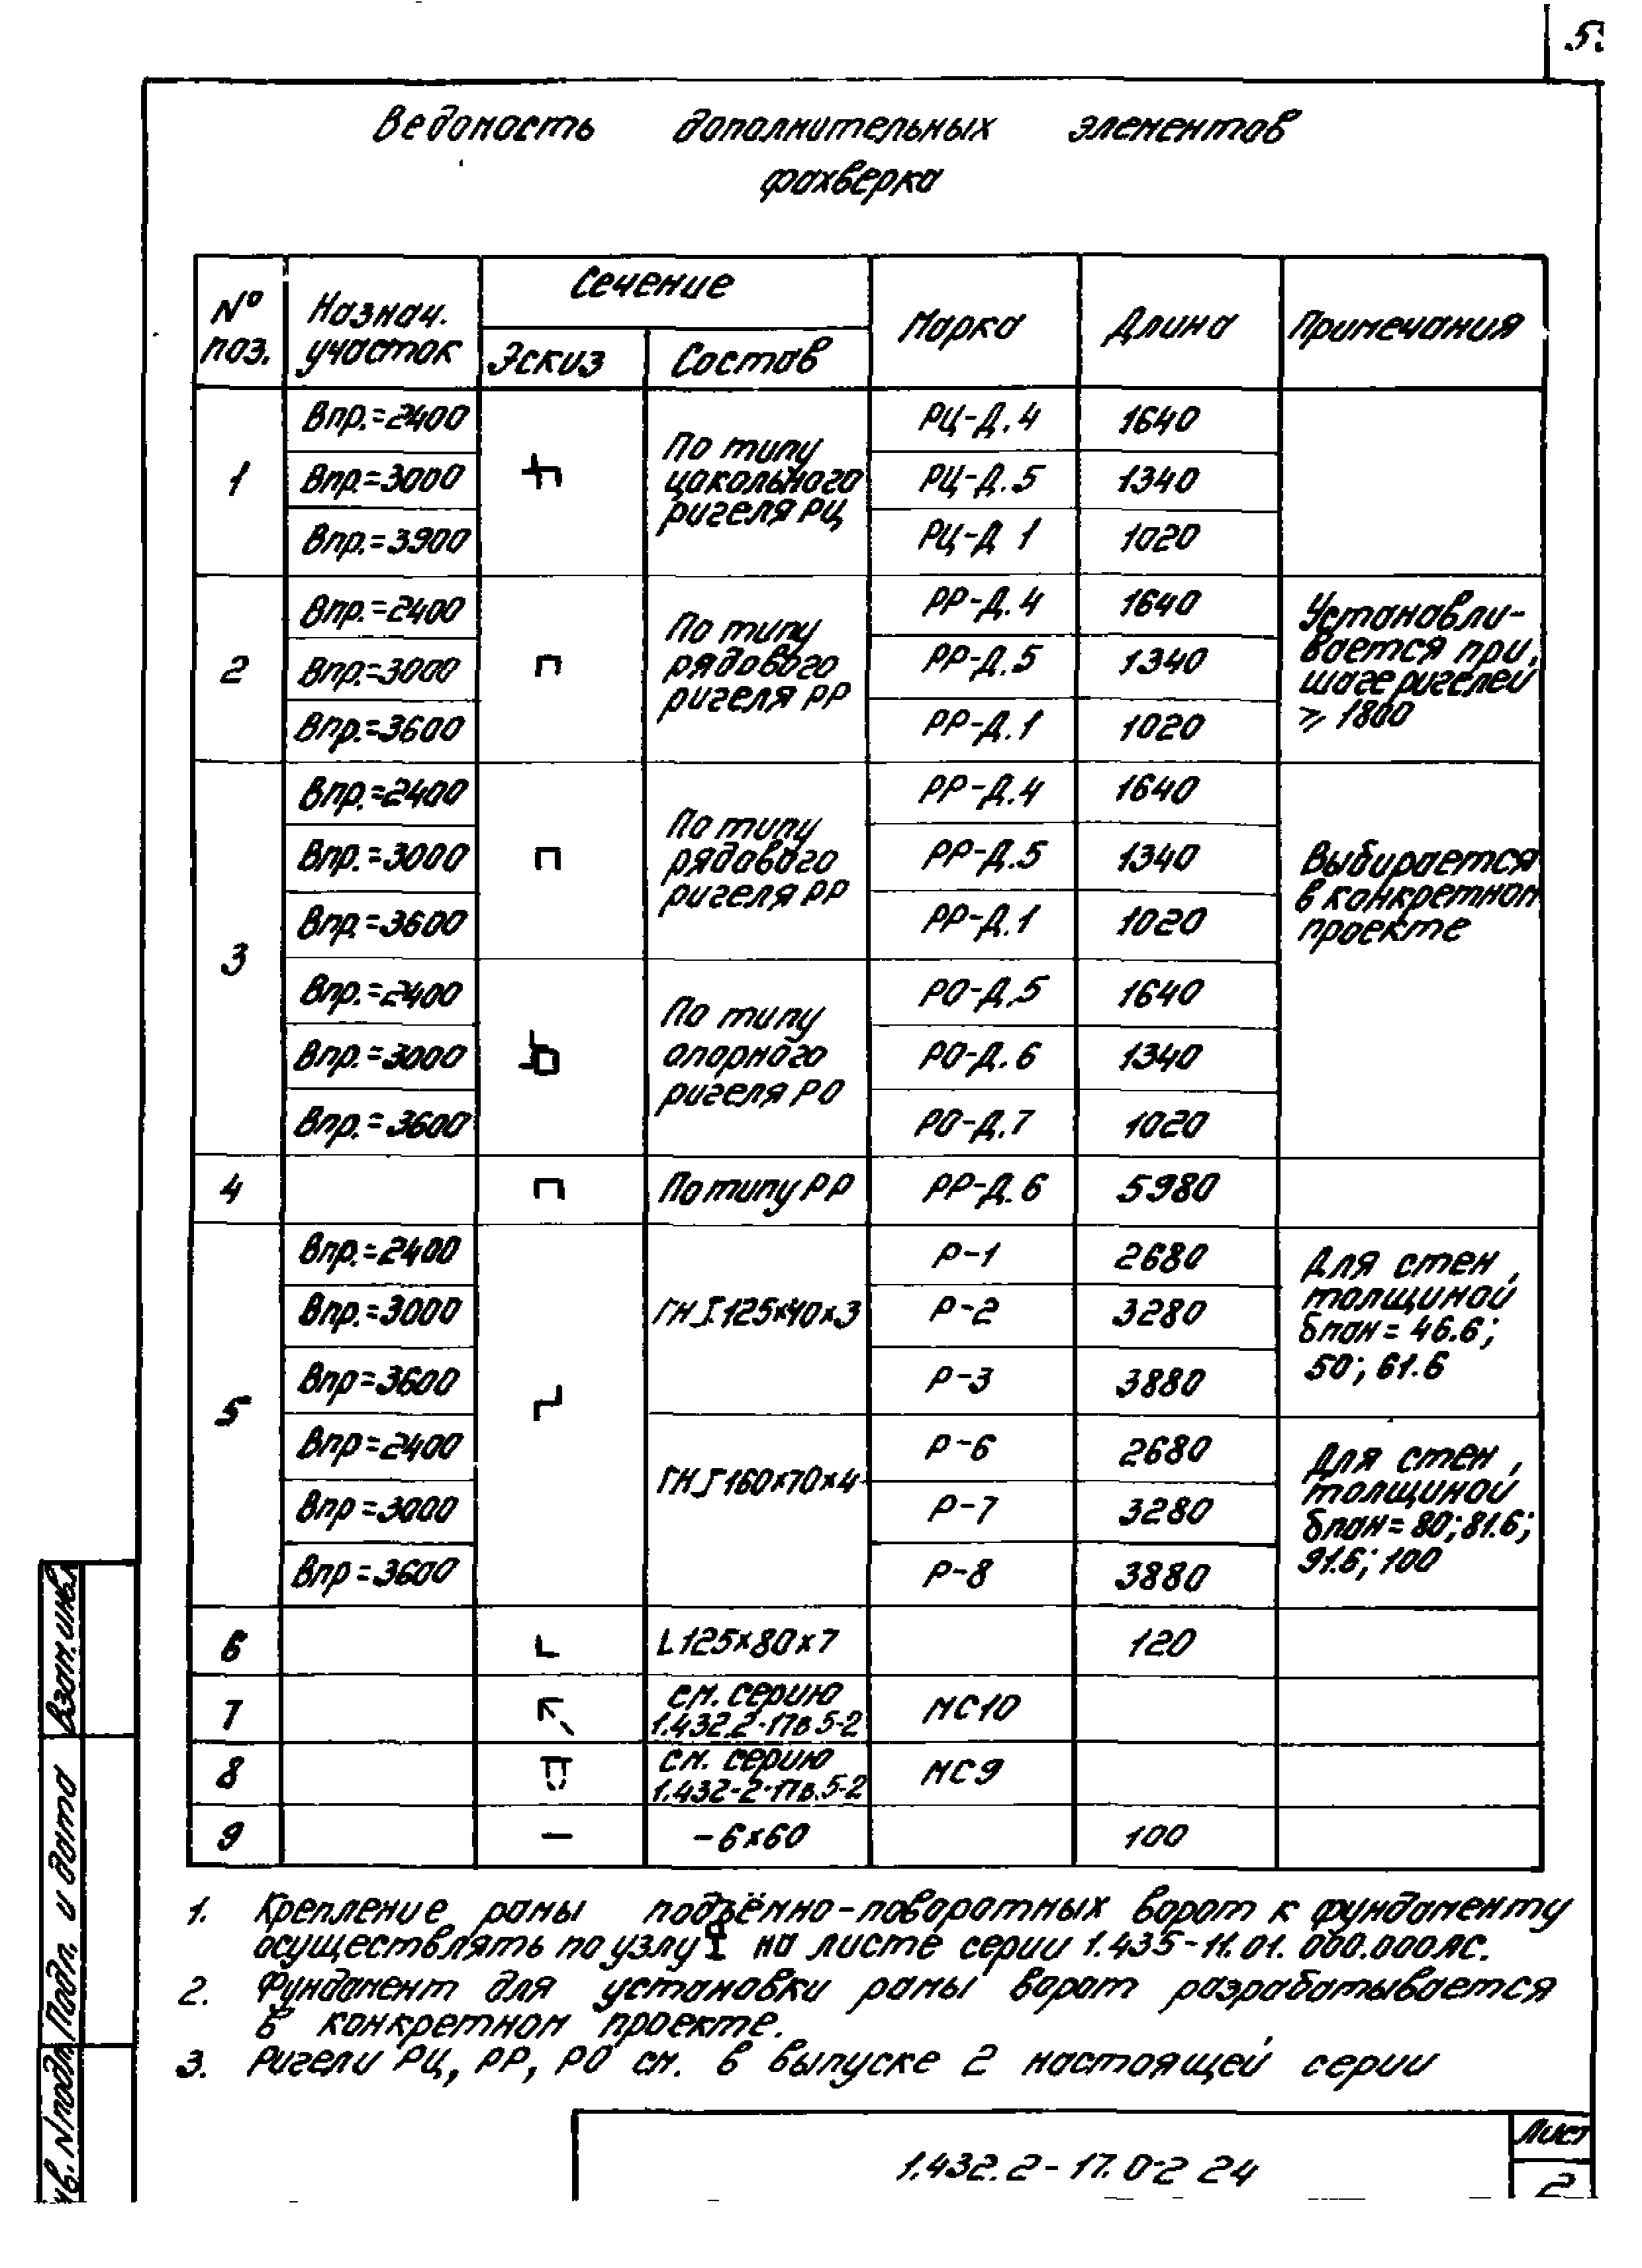 5
Ведомость дополнительных элементов
фахверка
№ поз. Назнач. участок Сечение Марка Длина Примечания
Эскиз Состав
1 Впр.=2400 По типу цокольного ригеля РЦ РЦ-Д.4 1640
Впр.=3000 РЦ-Д.5 1340
Впр.=3900 РЦ-Д 1 1020
2 Впр.=2400 По типу рядового ригеля РР РР-Д.4 1640 Устанавли-
вается при
шаге ригелей
≥ 1800
Впр.=3000 РР-Д.5 1340
Впр.=3600 РР-Д.1 1020
3 Впр.=2400 По типу рядового ригеля РР РР-Д.4 1640 Выбирается
в конкретном
проекте
Впр.=3000 РР-Д.5 1340
Впр.=3600 РР-Д.1 1020
Впр.=2400 По типу опорного ригеля РО РО-Д.5 1640
Впр.=3000 РО-Д.6 1340
Впр.=3600 РО-Д.7 1020
4 По типу РР РР-Д.6 5980
5 Впр.=2400 ГН.[125×40×3 Р-1 2680 Для стен
толщиной
δпан = 46.6;
50; 61.6
Впр.=3000 Р-2 3280
Впр=3600 Р-3 3880
Впр=2400 ГН.[160×70×4 Р-6 2680 Для стен
толщиной
δпан = 80; 81.6;
91.6; 100
Впр=3000 Р-7 3280
Впр=3600 Р-8 3880
6 L125×80×7 120
7 см. серию
1.432.2-17в.5-2 МС10
8 см. серию
1.432-2-17в.5-2 МС9
9 -6×60 100
1. Крепление рамы подъёмно-поворотных ворот к фундаменту
осуществлять по узлу I на листе серии 1.435-11.01.000.000ЛС.
2. Фундамент для установки рамы ворот разрабатывается
в конкретном проекте.
3. Ригели РЦ, РР, РО см. в выпуске 2 настоящей серии
1.432.2-17.0-2 24
Лист
2
Взам.инв.
Подп. и дата
нв. N подл